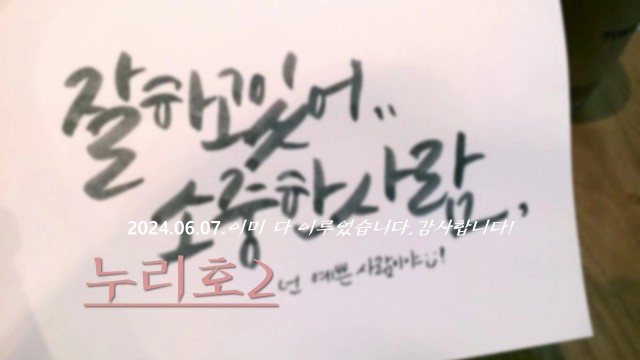 잘하고있어..
소중한사람,
2024.06.07. 이미 다 이루었습니다. 감사합니다!
누리호2
넌 예쁜 사람이야:)!